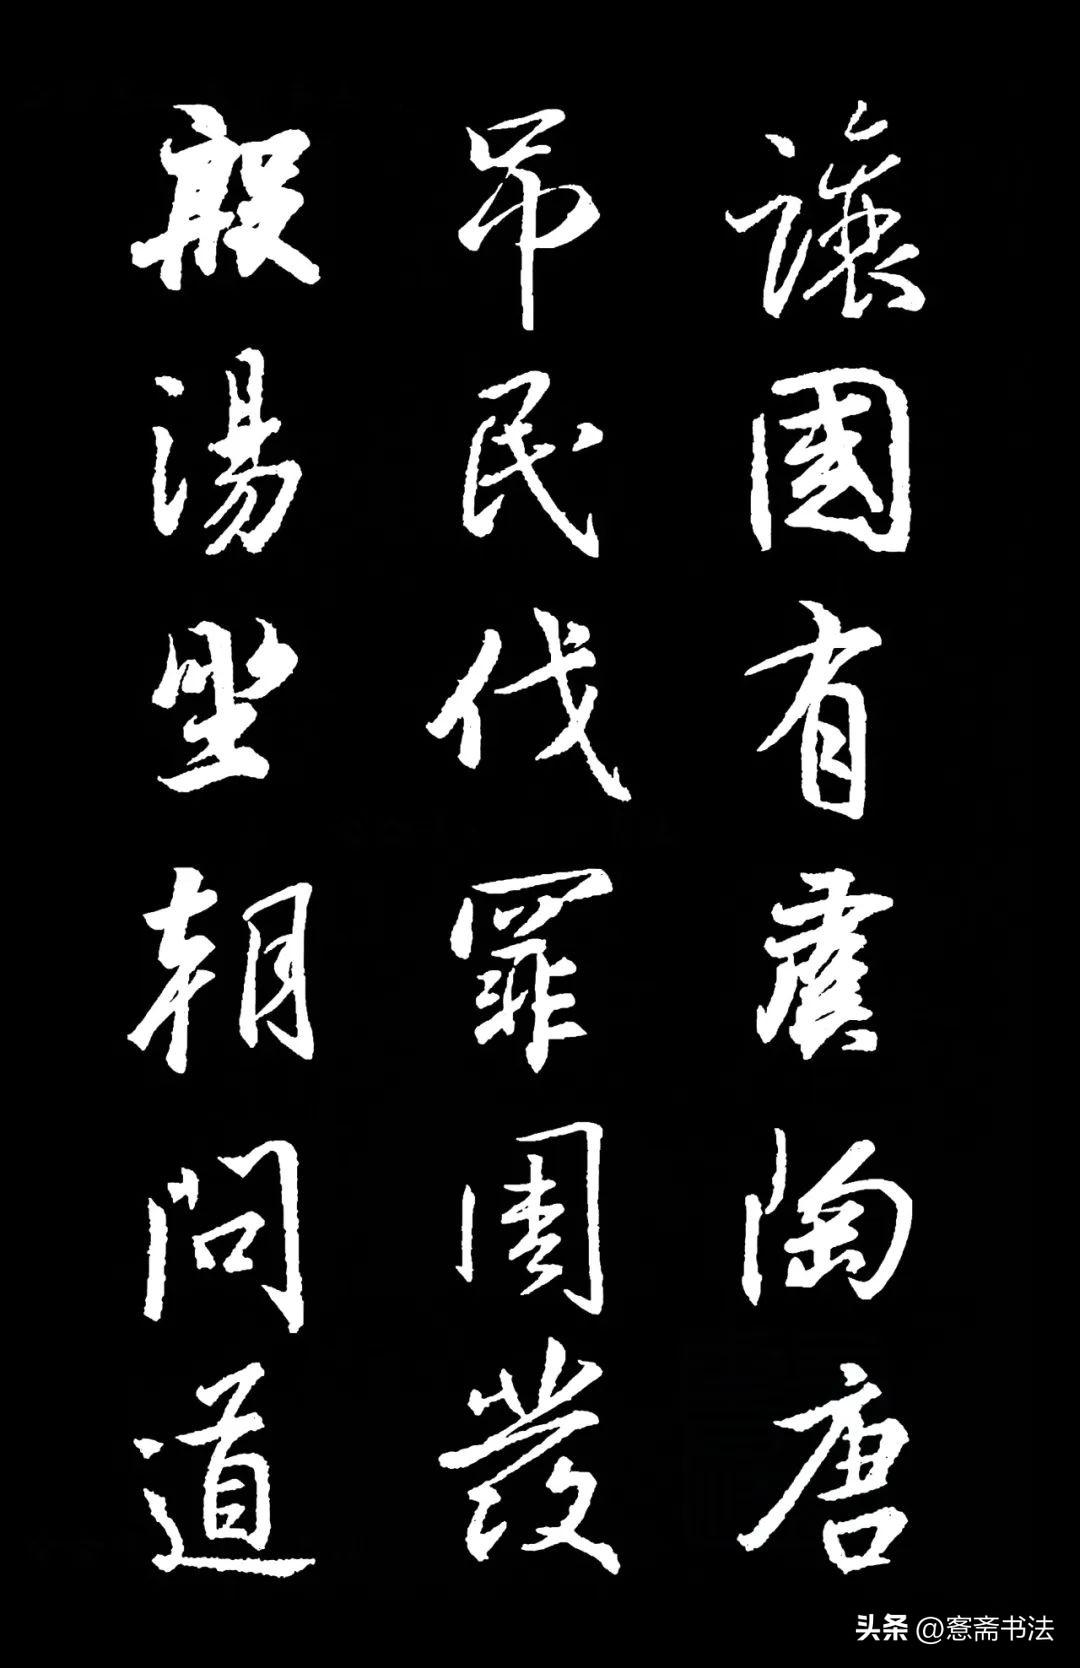 讓國有虞陶唐
吊民伐罪周發
殷湯坐朝問道
头条 @愙斋书法